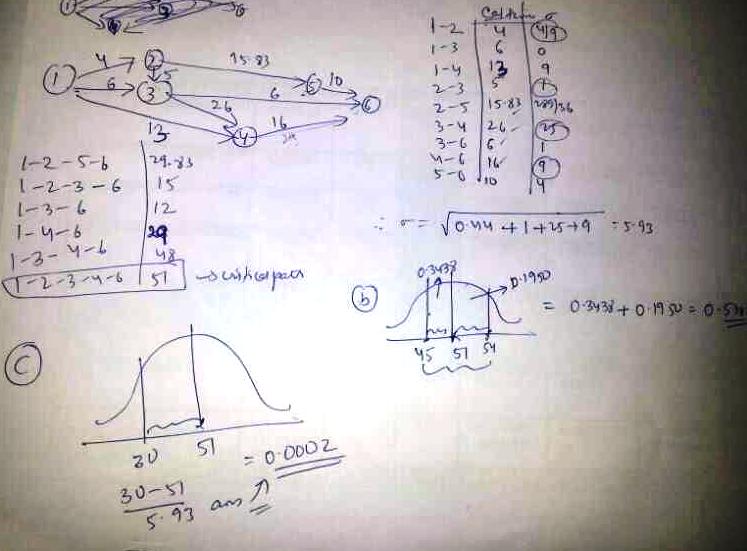 1 4 2 15.83 5 10
5
6 3 6 6
26
13 4 16
1-2-5-6 29.83
1-2-3-6 15
1-3-6 12
1-4-6 29
1-3-4-6 48
1-2-3-4-6 51 →
σ
1-2 4 4/9
1-3 6 0
1-4 13 9
2-3 5 1
2-5 15.83 289/36
3-4 26 25
3-6 6 1
4-6 16 9
5-6 10 4
∴ σ = √0.44 + 1 + 25 + 9 = 5.93
(b) 0.3438 0.1950 = 0.3438 + 0.1950 =
45 51 54
(C)
30 51 = 0.0002
30-51
5.93 ans